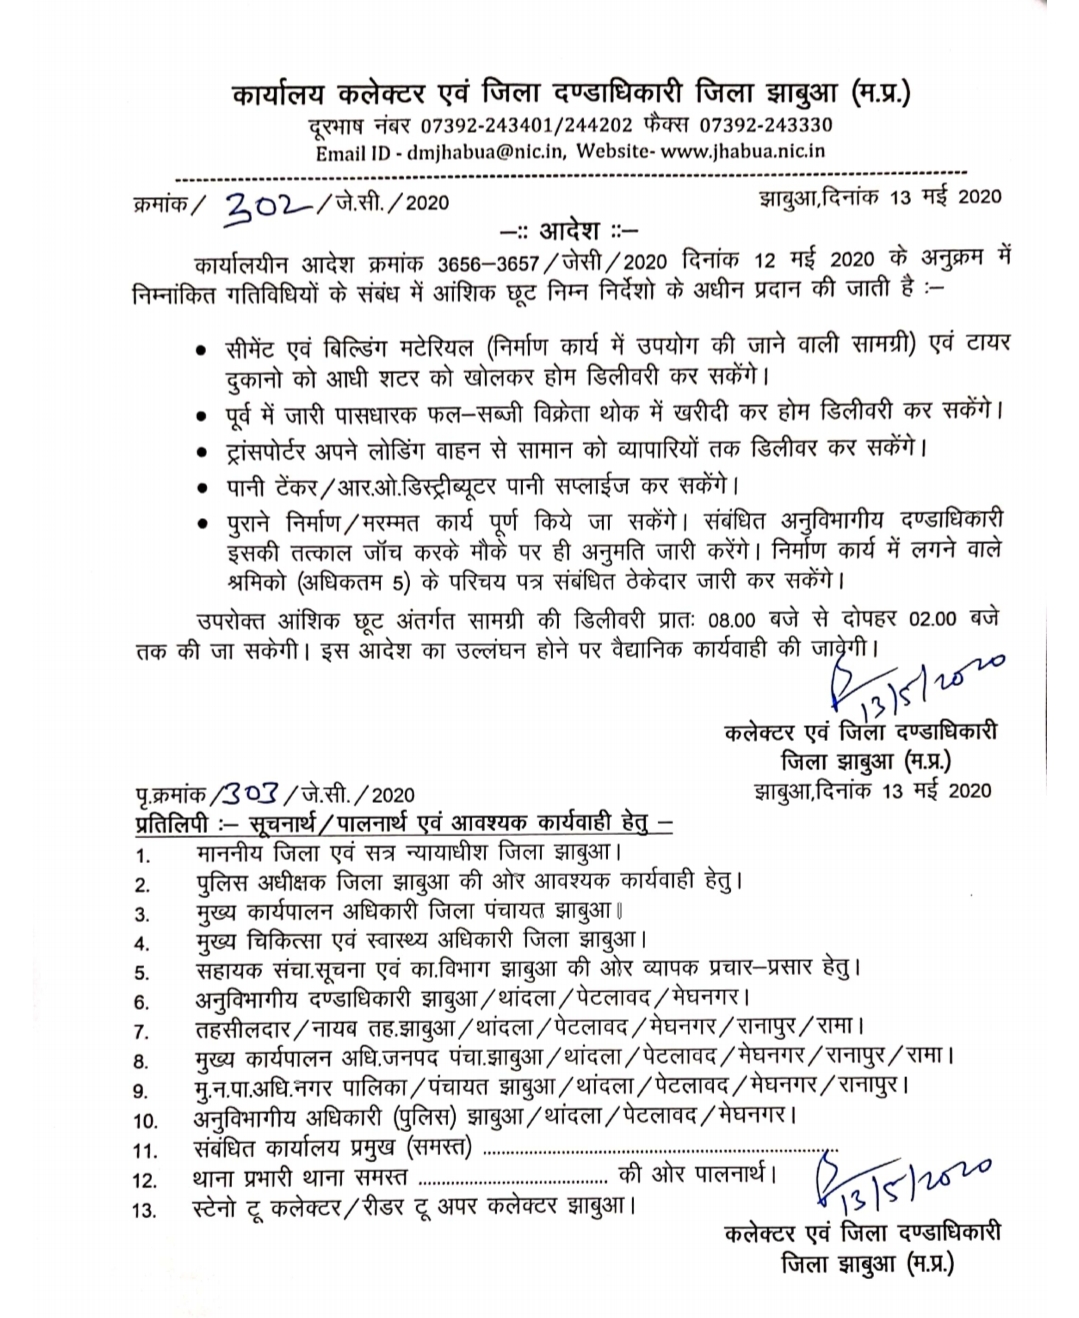 कार्यालय कलेक्टर एवं जिला दण्डाधिकारी जिला झाबुआ (म.प्र.)
दूरभाष नंबर 07392-243401/244202 फैक्स 07392-243330
Email ID - dmjhabua@nic.in, Website- www.jhabua.nic.in
क्रमांक/ 302/जे.सी./2020 झाबुआ,दिनांक 13 मई 2020
—:: आदेश ::—
कार्यालयीन आदेश क्रमांक 3656–3657/जेसी/2020 दिनांक 12 मई 2020 के अनुक्रम में
निम्नांकित गतिविधियों के संबंध में आंशिक छूट निम्न निर्देशो के अधीन प्रदान की जाती है :–
• सीमेंट एवं बिल्डिंग मटेरियल (निर्माण कार्य में उपयोग की जाने वाली सामग्री) एवं टायर
दुकानो को आधी शटर को खोलकर होम डिलीवरी कर सकेंगे।
• पूर्व में जारी पासधारक फल–सब्जी विक्रेता थोक में खरीदी कर होम डिलीवरी कर सकेंगे।
• ट्रांसपोर्टर अपने लोडिंग वाहन से सामान को व्यापारियों तक डिलीवर कर सकेंगे।
• पानी टेंकर/आर.ओ.डिस्ट्रीब्यूटर पानी सप्लाईज कर सकेंगे।
• पुराने निर्माण/मरम्मत कार्य पूर्ण किये जा सकेंगे। संबंधित अनुविभागीय दण्डाधिकारी
इसकी तत्काल जॉच करके मौके पर ही अनुमति जारी करेंगे। निर्माण कार्य में लगने वाले
श्रमिको (अधिकतम 5) के परिचय पत्र संबंधित ठेकेदार जारी कर सकेंगे।
उपरोक्त आंशिक छूट अंतर्गत सामग्री की डिलीवरी प्रातः 08.00 बजे से दोपहर 02.00 बजे
तक की जा सकेगी। इस आदेश का उल्लंघन होने पर वैद्यानिक कार्यवाही की जावेगी।
13/5/2020
कलेक्टर एवं जिला दण्डाधिकारी
जिला झाबुआ (म.प्र.)
पृ.क्रमांक/303/जे.सी./2020 झाबुआ,दिनांक 13 मई 2020
प्रतिलिपी :– सूचनार्थ/पालनार्थ एवं आवश्यक कार्यवाही हेतु –
1. माननीय जिला एवं सत्र न्यायाधीश जिला झाबुआ।
2. पुलिस अधीक्षक जिला झाबुआ की ओर आवश्यक कार्यवाही हेतु।
3. मुख्य कार्यपालन अधिकारी जिला पंचायत झाबुआ॥
4. मुख्य चिकित्सा एवं स्वास्थ्य अधिकारी जिला झाबुआ।
5. सहायक संचा.सूचना एवं का.विभाग झाबुआ की ओर व्यापक प्रचार–प्रसार हेतु।
6. अनुविभागीय दण्डाधिकारी झाबुआ/थांदला/पेटलावद/मेघनगर।
7. तहसीलदार/नायब तह.झाबुआ/थांदला/पेटलावद/मेघनगर/रानापुर/रामा।
8. मुख्य कार्यपालन अधि.जनपद पंचा.झाबुआ/थांदला/पेटलावद/मेघनगर/रानापुर/रामा।
9. मु.न.पा.अधि.नगर पालिका/पंचायत झाबुआ/थांदला/पेटलावद/मेघनगर/रानापुर।
10. अनुविभागीय अधिकारी (पुलिस) झाबुआ/थांदला/पेटलावद/मेघनगर।
11. संबंधित कार्यालय प्रमुख (समस्त) ..........................................................
12. थाना प्रभारी थाना समस्त ..................................... की ओर पालनार्थ।
13. स्टेनो टू कलेक्टर/रीडर टू अपर कलेक्टर झाबुआ।
13/5/2020
कलेक्टर एवं जिला दण्डाधिकारी
जिला झाबुआ (म.प्र.)